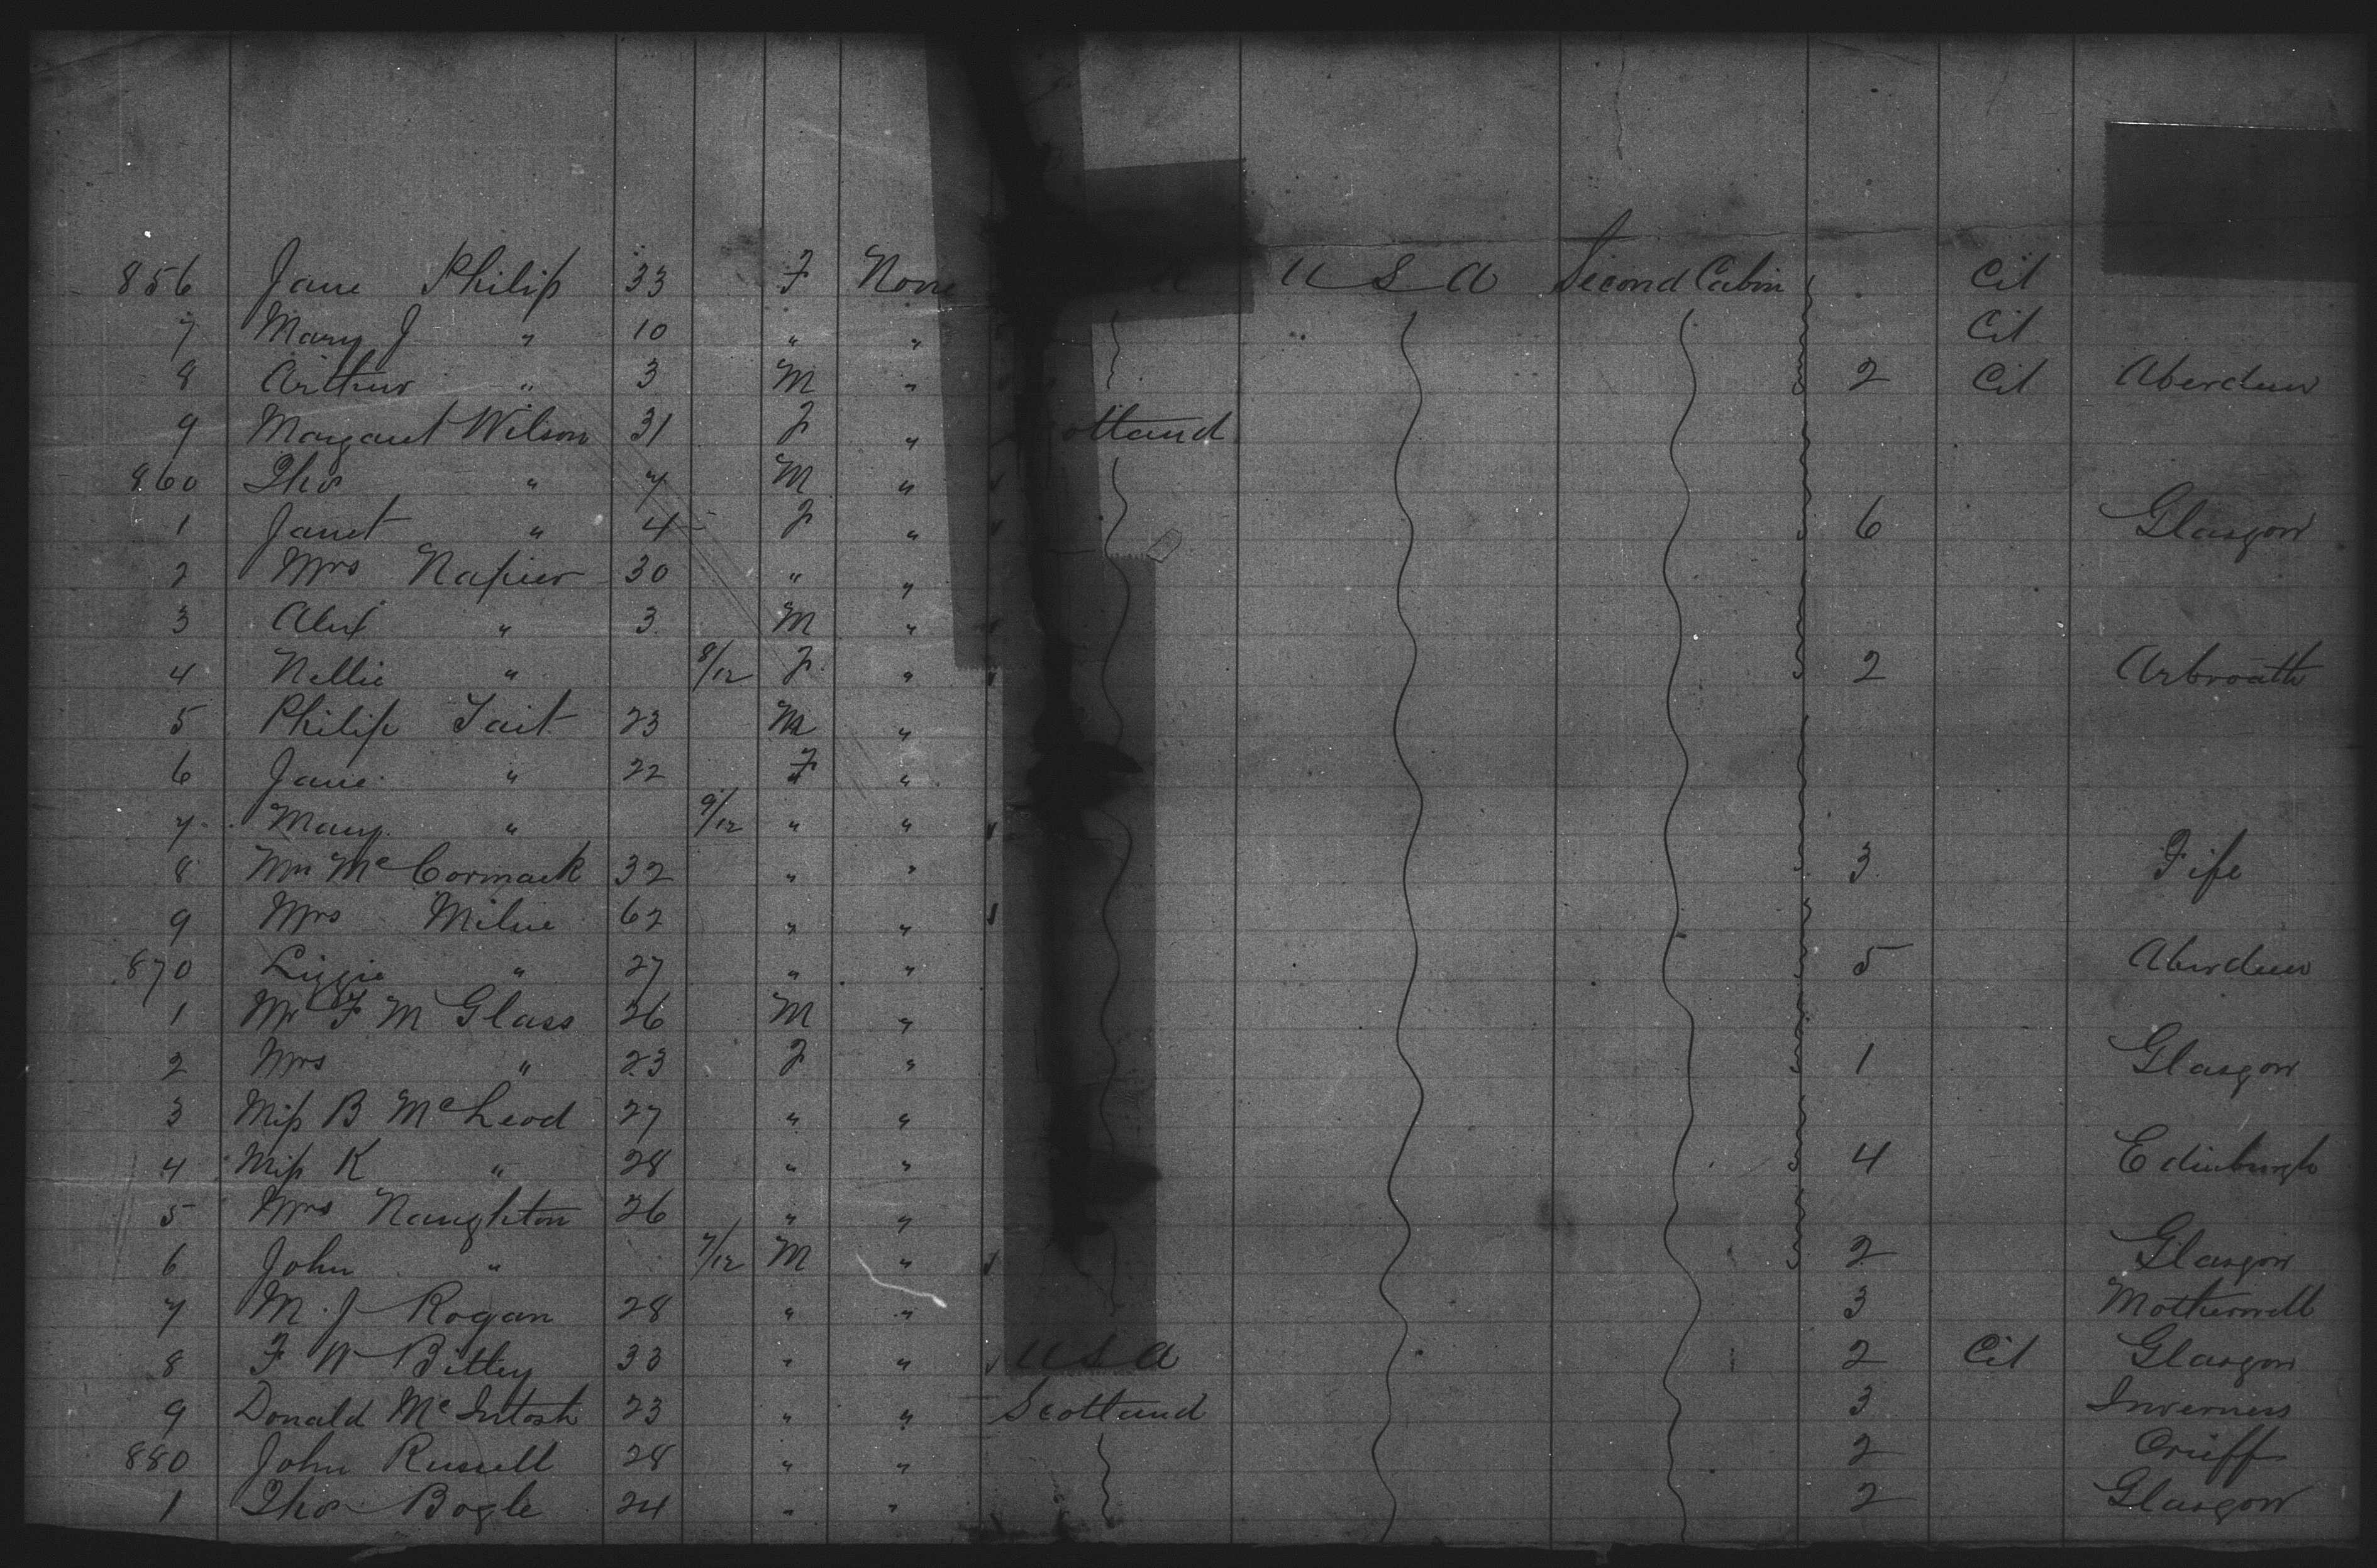 856 Jane Philip 33 F None U S A Second Cabin Cit
7 Mary J " 10 " " Cit
8 Arthur " 3 M " 2 Cit Aberdeen
9 Margaret Wilson 31 F " otland
860 Thos " 7 M "
1 Janet " 4 F " 6 Glasgow
2 Mrs Napier 30 " "
3 Alex " 3 M "
4 Nellie " 8/12 F " 2 Arbroath
5 Philip Tait 23 M "
6 Jane " 22 F "
7 Mary " 9/12 " "
8 McCormack 32 " " 3 Fife
9 Mrs Milne 62 " "
870 Lizzie " 27 " " 5 Aberdeen
1 Mr F M Glass 26 M "
2 Mrs " 23 F " 1 Glasgow
3 Miss B McLeod 27 " "
4 Miss K " 28 " " 4 Edinburgh
5 Mrs Naughton 26 " "
6 John " 7/12 M " 2 Glasgow
7 M. J Rogan 28 " " 3 Motherwell
8 F W Bittey 33 " " U S A 2 Cit Glasgow
9 Donald McIntosh 23 " " Scotland 3 Inverness
880 John Russell 28 " " 2 Crieff
1 Thos Bogle 24 " " 2 Glasgow